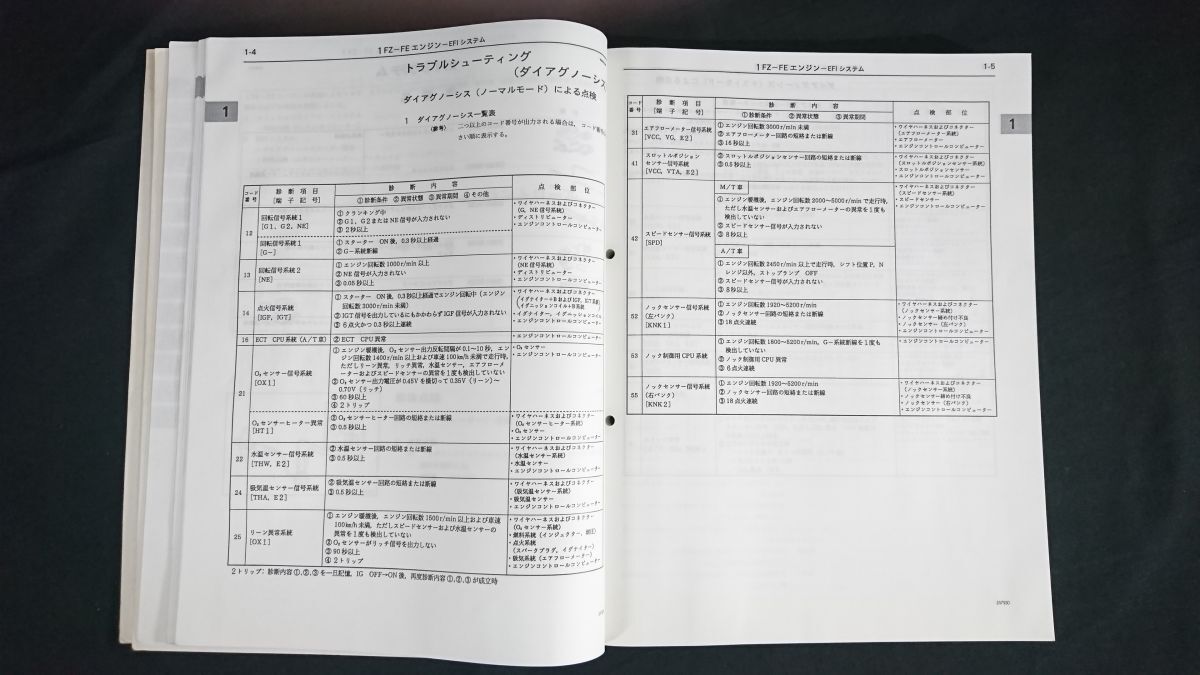 1-4
1FZ-FE エンジン-EFI システム
トラブルシューティング
(ダイアグノーシス
ダイアグノーシス (ノーマルモード) による点検
1
1 ダイアグノーシス一覧表
(参考) 二つ以上のコード番号が出力される場合は、コード番号
さい順に表示する。
コード番号 診断項目 [端子記号] 診断内容 ①診断条件 ②異常状態 ③異常期間 ④その他 点検部位
12 回転信号系統1 [G1、G2、NE]
① クランキング中
② G1、G2またはNE信号が入力されない
③ 2秒以上
・ワイヤハーネスおよびコネクター
(G、NE信号系統)
・ディストリビューター
・エンジンコントロールコンピューター
回転信号系統1 [G-]
① スターター ON後、0.3秒以上経過
② G-系統断線
13 回転信号系統2 [NE]
① エンジン回転数1000r/min以上
② NE信号が入力されない
③ 0.05秒以上
・ワイヤハーネスおよびコネクター
(NE信号系統)
・ディストリビューター
・エンジンコントロールコンピューター
14 点火信号系統 [IGF、IGT]
① スターター ON後、0.3秒以上経過でエンジン回転中 (エンジン
回転数3000r/min未満)
② IGT信号を出力しているにもかかわらずIGF信号が入力されない
③ 6点火かつ0.3秒以上連続
・ワイヤハーネスおよびコネクター
(イグナイター+BおよびIGF、IGT系統)
(イグニッションコイル+B系統)
・イグナイター、イグニッションコイル
・エンジンコントロールコンピューター
16 ECT CPU系統 (A/T車) ② ECT CPU異常
・エンジンコントロールコンピューター
21 O₂センサー信号系統 [OX1]
① エンジン暖機後、O₂センサー出力反転間隔が0.1~10秒、エン
ジン回転数1400r/min以上および車速100km/h未満で走行時、
ただしリーン異常、リッチ異常、水温センサー、エアフローメ
ーターおよびスピードセンサーの異常を1度も検出していない
② O₂センサー出力電圧が0.45Vを横切って0.35V (リーン) ~
0.70V (リッチ)
③ 60秒以上
④ 2トリップ
・O₂センサー
・エンジンコントロールコンピューター
O₂センサーヒーター異常 [HT1]
② O₂センサーヒーター回路の短絡または断線
③ 0.5秒以上
・ワイヤハーネスおよびコネクター
(O₂センサーヒーター系統)
・O₂センサー
・エンジンコントロールコンピューター
22 水温センサー信号系統 [THW、E2]
② 水温センサー回路の短絡または断線
③ 0.5秒以上
・ワイヤハーネスおよびコネクター
(水温センサー系統)
・水温センサー
・エンジンコントロールコンピューター
24 吸気温センサー信号系統 [THA、E2]
② 吸気温センサー回路の短絡または断線
③ 0.5秒以上
・ワイヤハーネスおよびコネクター
(吸気温センサー系統)
・吸気温センサー
・エンジンコントロールコンピューター
25 リーン異常系統 [OX1]
① エンジン暖機後、エンジン回転数1500r/min以上および車速
100km/h未満、ただしスピードセンサーおよび水温センサーの
異常を1度も検出していない
② O₂センサーがリッチ信号を出力しない
③ 90秒以上
④ 2トリップ
・ワイヤハーネスおよびコネクター
(O₂センサー系統)
・燃料系統 (インジェクター、燃圧)
・点火系統
(スパークプラグ、イグナイター)
・吸気系統 (エアフローメーター)
・エンジンコントロールコンピューター
2トリップ:診断内容①、②、③を一旦記憶、IG OFF→ON後、再度診断内容①、②、③が成立時
1FZ-FE エンジン-EFI システム
1-5
1
コード番号 診断項目 [端子記号] 診断内容 ①診断条件 ②異常状態 ③異常期間 点検部位
31 エアフローメーター信号系統 [VCC、VG、E2]
① エンジン回転数3000r/min未満
② エアフローメーター回路の短絡または断線
③ 16秒以上
・ワイヤハーネスおよびコネクター
(エアフローメーター系統)
・エアフローメーター
・エンジンコントロールコンピューター
41 スロットルポジションセンサー信号系統 [VCC、VTA、E2]
② スロットルポジションセンサー回路の短絡または断線
③ 0.5秒以上
・ワイヤハーネスおよびコネクター
(スロットルポジションセンサー系統)
・スロットルポジションセンサー
・エンジンコントロールコンピューター
42 スピードセンサー信号系統 [SPD]
M/T車
① エンジン暖機後、エンジン回転数2000~5000r/minで走行時、
ただし水温センサーおよびエアフローメーターの異常を1度も
検出していない
② スピードセンサー信号が入力されない
③ 8秒以上
A/T車
① エンジン回転数2450r/min以上で走行時、シフト位置P、N
レンジ以外、ストップランプ OFF
② スピードセンサー信号が入力されない
③ 8秒以上
・ワイヤハーネスおよびコネクター
(スピードセンサー系統)
・スピードセンサー
・エンジンコントロールコンピューター
52 ノックセンサー信号系統 (左バンク) [KNK1]
① エンジン回転数1920~5200r/min
② ノックセンサー回路の短絡または断線
③ 18点火連続
・ワイヤハーネスおよびコネクター
(ノックセンサー系統)
・ノックセンサー締め付け不良
・ノックセンサー (左バンク)
・エンジンコントロールコンピューター
53 ノック制御用CPU系統
① エンジン回転数1600~5200r/min、G-系統断線を1度も
検出していない
② ノック制御用CPU異常
③ 6点火連続
・エンジンコントロールコンピューター
55 ノックセンサー信号系統 (右バンク) [KNK2]
① エンジン回転数1920~5200r/min
② ノックセンサー回路の短絡または断線
③ 18点火連続
・ワイヤハーネスおよびコネクター
(ノックセンサー系統)
・ノックセンサー締め付け不良
・ノックセンサー (右バンク)
・エンジンコントロールコンピューター